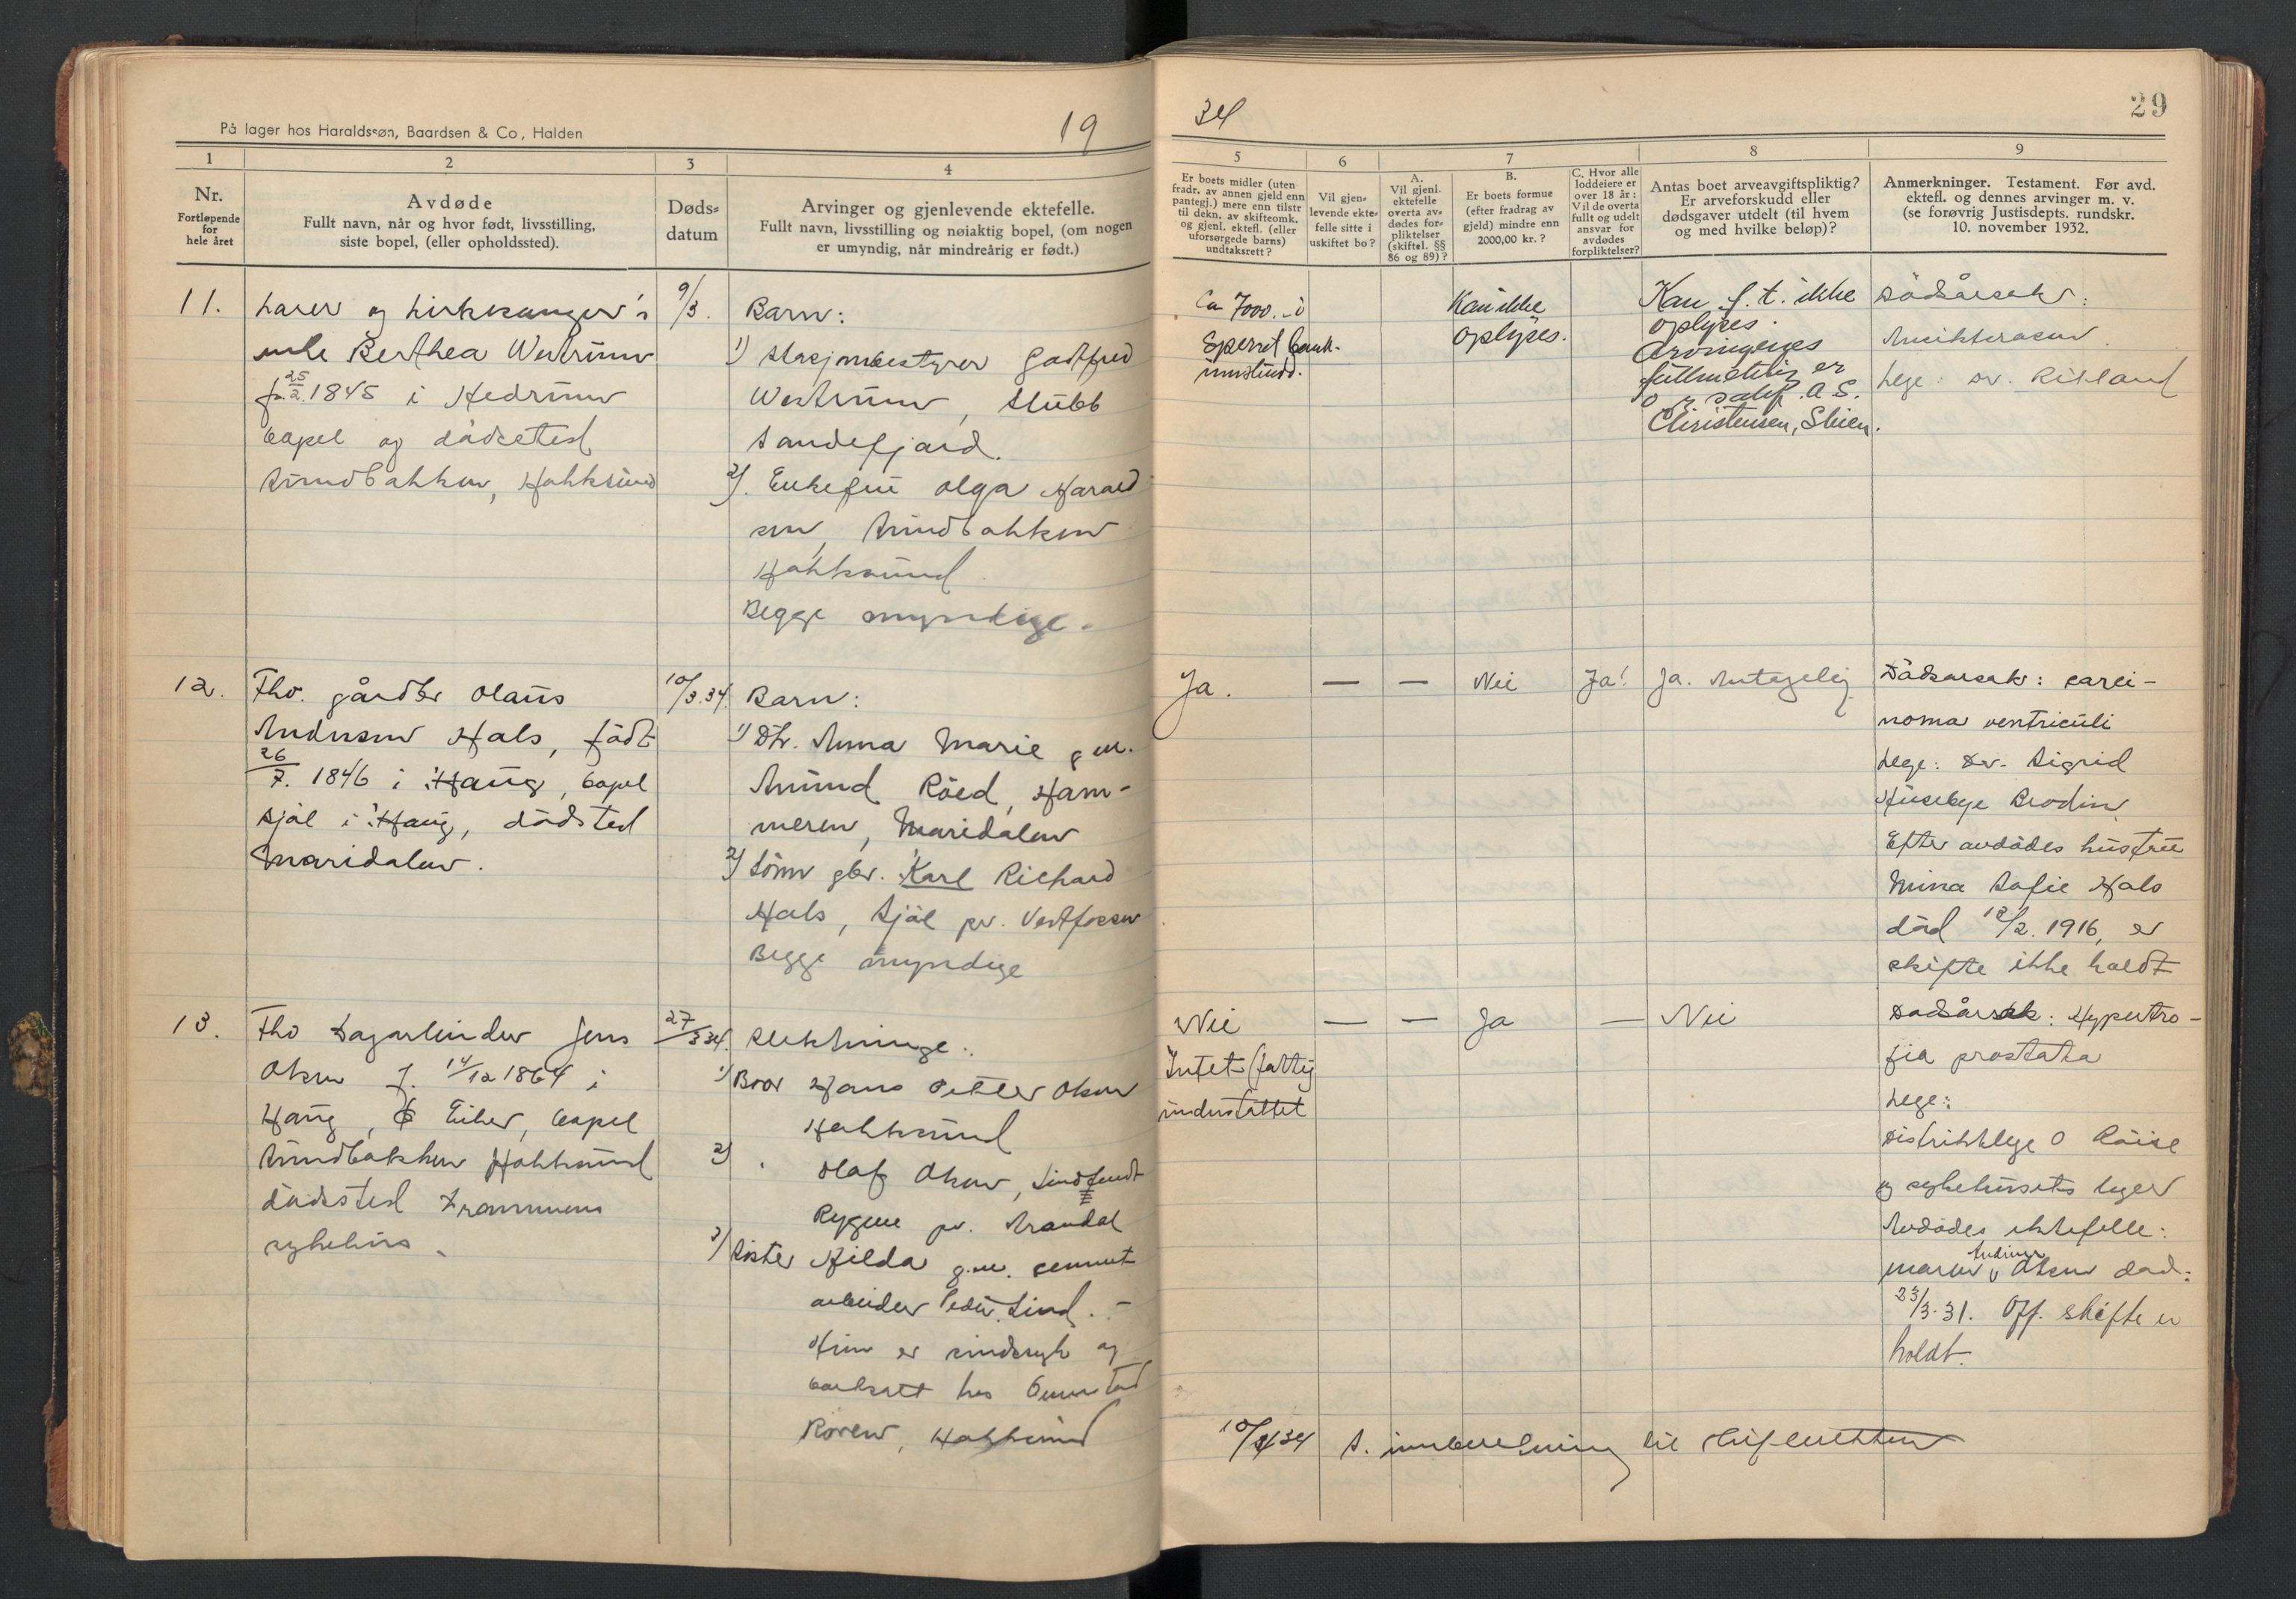 På lager hos Haraldssøn, Baardsen & Co, Halden
19
1
2
3
4
Nr.
Fortløpende
for
hele året
Avdøde
Fullt navn, når og hvor født, livsstilling,
siste bopel, (eller opholdssted).
Døds-
datum
Arvinger og gjenlevende ektefelle.
Fullt navn, livsstilling og nøiaktig bopel, (om nogen
er umyndig, når mindreårig er født.)
11.
Lærer og kirkesanger's
enke Berthea Westrum
f. 25/2. 1845 i Hedrum
bopel og dødssted
Strandbakken, Hokksund
9/3.
Barn:
1) Stasjonsbestyrer Godtfred
Westrum, Stubb
Sandefjord.
2). Enkefru Olga Harald
sen, Strandbakken
Hokksund
Begge myndige.
12.
Fhv. gårdbr Olaus
Andersen Hals, født
26/7. 1846 i Haug, bopel
Sjøl i Haug, dødsted
Maridalen.
10/3.34.
Barn:
1) Dtr. Anna Marie g.m.
Amund Röed, Ham-
meren, Maridalen
2) Sønn gbr. Karl Richard
Hals, Sjøl pr. Vestfossen
Begge myndige
13.
Fhv Dagarbeider Jens
Olsen f. 14/12 1864 i
Haug, Eiker, bopel
Strandbakken Hokksund
dødssted Drammens
sykehus.
27/3 34.
Slektninge:
1) Bror Hans Petter Olsen
Hokksund
2) " Olaf Olsen,
Rygene pr. Arendal
3) Søster Hilda g.m. sement
arbeider Peder Lind. -
Hun er sindssyk og
bortsatt hos Gunnstad
Roren, Hokksund
34
29
5
6
7
8
9
Er boets midler (uten
fradr. av annen gjeld enn
pantegj.) mere enn tilstr
til dekn. av skifteomk.
og gjenl. ektefl. (eller
uforsørgede barns)
undtaksrett?
Vil gjen-
levende ekte-
felle sitte i
uskiftet bo?
A.
Vil gjenl.
ektefelle
overta av-
dødes for-
pliktelser
(skiftel. §§
86 og 89)?
B.
Er boets formue
(efter fradrag av
gjeld) mindre enn
2000,00 kr.?
C. Hvor alle
loddeiere er
over 18 år:
Vil de overta
fullt og udelt
ansvar for
avdødes
forpliktelser?
Antas boet arveavgiftspliktig?
Er arveforskudd eller
dødsgaver utdelt (til hvem
og med hvilke beløp)?
Anmerkninger. Testament. Før avd.
ektefl. og dennes arvinger m. v.
(se forøvrig Justisdepts. rundskr.
10. november 1932.
Ca 7000.- i
Sperret bank-
innskudd.
Kan ikke
oplyses.
Kan f. t. ikke
oplyses.
Arvingenes
fullmektig er
o. r. sakf. A S.
Christensen, Skien.
Dødsårsak:
Lege: Dr. Rikland
Ja.
— — Nei Ja! Ja. Antagelig
Dødsårsak: carci-
noma ventriculi
Lege: Dr. Sigrid
Huseby Brodin
Efter avdødes hustru
Mina Sofie Hals
død 18/2. 1916, er
skifte ikke holdt
Nei
Intet (fattig
understøttet
— — Ja — Nei
Dødsårsak: Hypertro-
fia prostata
Lege:
Distriktlege O Röise
og sykehusets leger
Avdødes ektefelle:
Maren Andrine Olsen død:
23/3-31. Off. skifte er
holdt.
10/4 34 S. innberetning til skifteretten